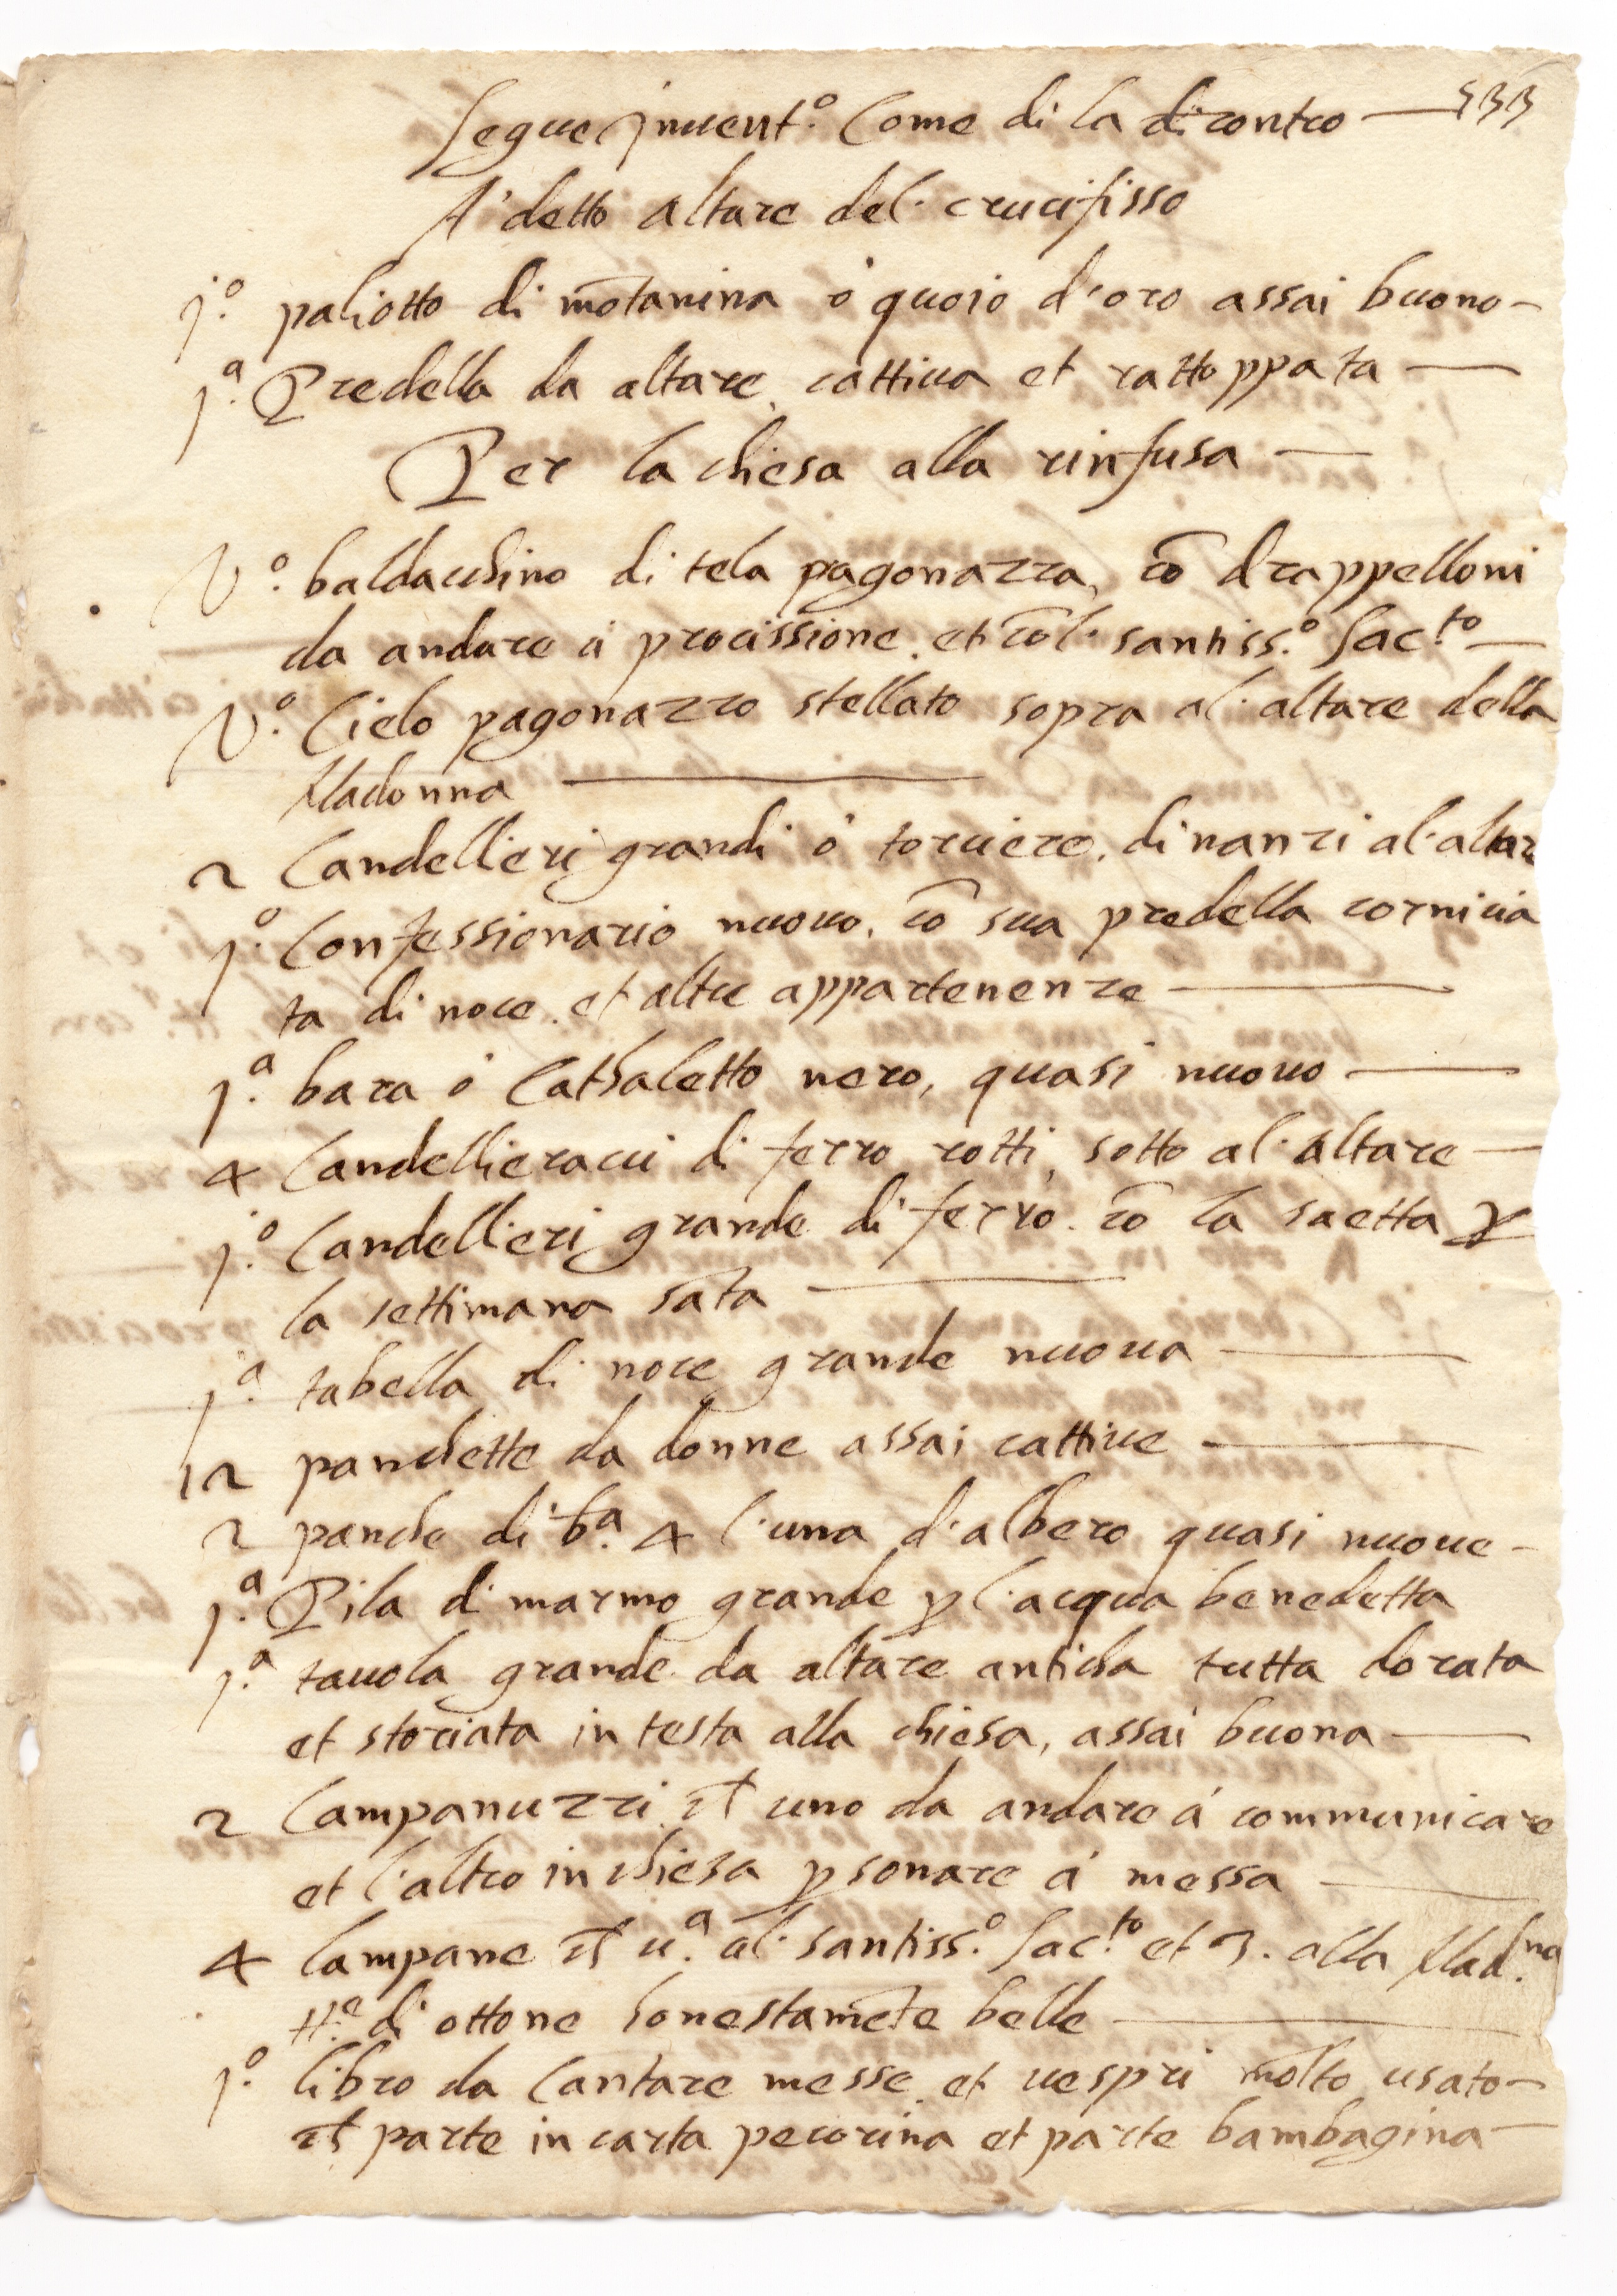 Segue Inuent.º Come di la dicontro — 533
A' detto altare del. crucifisso
j.º paliotto di mōtanina ó quoio d'oro assai buono —
j.ª Predella da altare, cattiua et rattoppata —
Per la chiesa alla rinfusa —
V.º baldachino di tela pagonazza, cō drappelloni
da andare á procissione. et cōl. santiss.º Sac.to —
V.º Cielo pagonazzo stellato sopra al. altare della
Madonna —
2 Candellieri grandi ó torciere. dinanzi al. altar
j.º Confessionario nuouo. cō sua predella cornicia
ta di noce. et altre appartenenze —
j.ª bara ó Cathaletto nero, quasi nuouo —
4 Candellieracci di ferro rotti, sotto al. altare —
j.º Candellieri grande di ferro. cō la saetta ꝑ
la settimana sāta —
j.ª tabella di noce grande nuoua —
12 panchette da donne assai cattiue —
2 panche di b.ª 4 l'una d'albero quasi nuoue —
j.ª Pila di marmo grande ꝑ l'acqua benedetta
j.ª tauola grande da altare anticha tutta dorata
et storiata in testa alla chiesa, assai buona —
2 Campanuzzi. uno da andare á communicare
et l'altro in chiesa ꝑ sonare á messa —
4 Lampane u.ª al. santiss.º Sac.to et 3. alla Mad.na
tt.e di ottone honestamēte belle —
j.º libro da Cantare messe. et uespri molto usato —
parte in carta pecorina et parte bambagina —